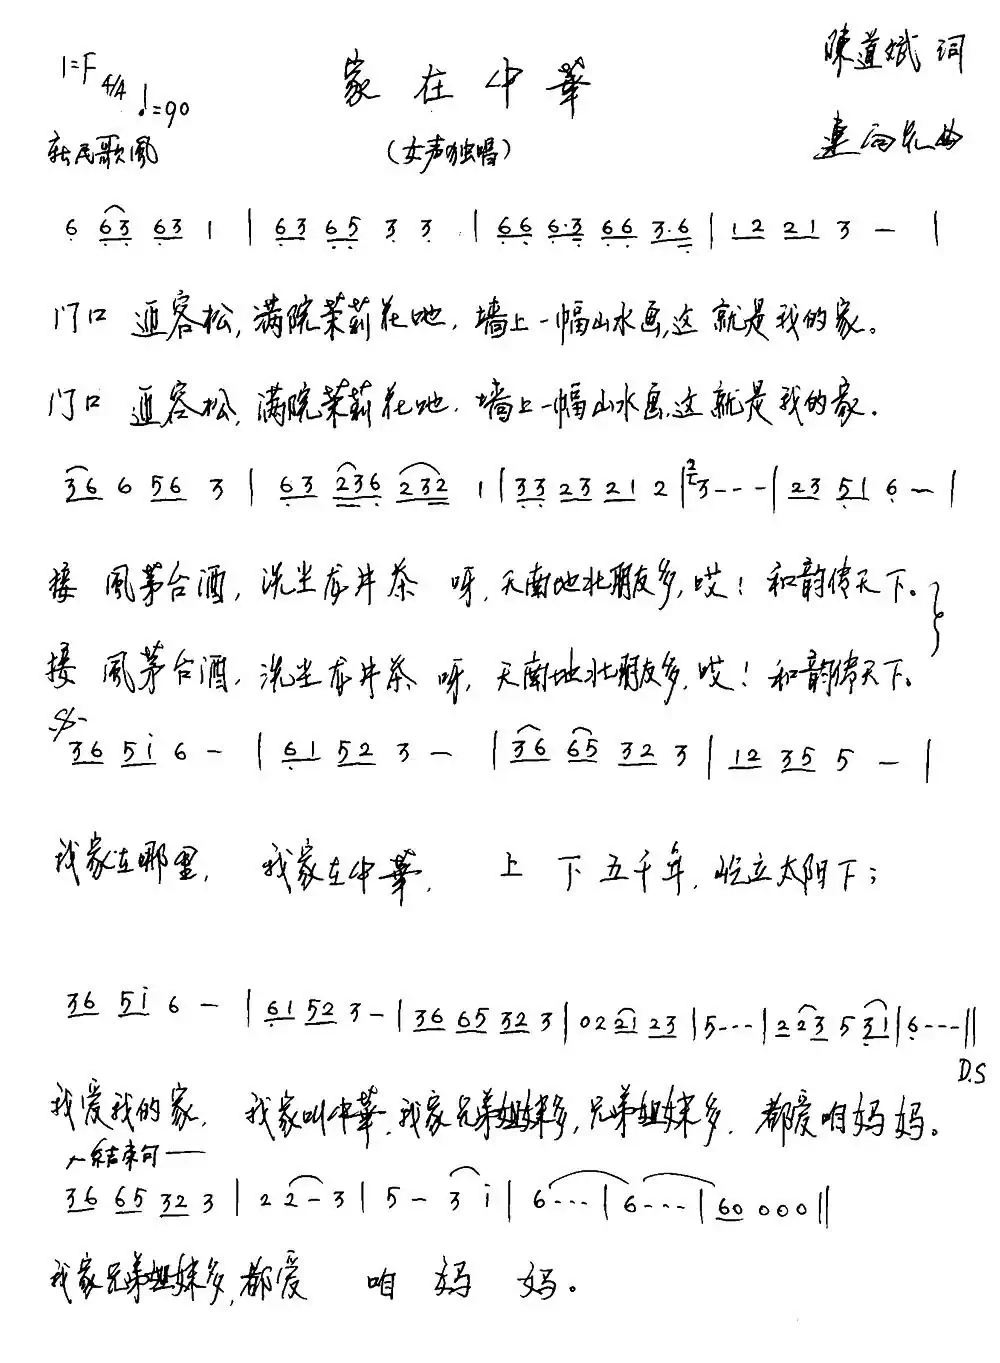 1=F 4/4 ♩=90
家在中華
陳道斌 词
新民歌風
(女声独唱)
曲
6 63 63 1 | 63 65 3 3 | 66 6·3 66 3·6 | 12 21 3 — |
门口 迎客松,满院茉莉花吔,墙上一幅山水画,这就是我的家。
门口 迎客松,满院茉莉花吔,墙上一幅山水画,这就是我的家。
36 6 56 3 | 63 236 232 1 | 33 23 21 2 | 2/4 3--- | 23 51 6 — |
接 風茅台酒,洗尘龙井茶 呀,天南地北朋友多,哎!和韵传天下。
接 風茅台酒,洗尘龙井茶 呀,天南地北朋友多,哎!和韵传天下。
36 5i 6 — | 61 52 3 — | 36 65 32 3 | 12 35 5 — |
我家在哪里, 我家在中華, 上下五千年,屹立太阳下;
36 5i 6 — | 61 52 3 — | 36 65 32 3 | 02 21 23 | 5--- | 223 5 31 | 6--- ||
D.S
我爱我的家, 我家叫中華,我家兄弟姐妹多,兄弟姐妹多,都爱咱妈妈。
结束句
36 65 32 3 | 2 2 — 3 | 5 — 3 i | 6--- | 6--- | 60 000 ||
我家兄弟姐妹多,都爱 咱 妈 妈。